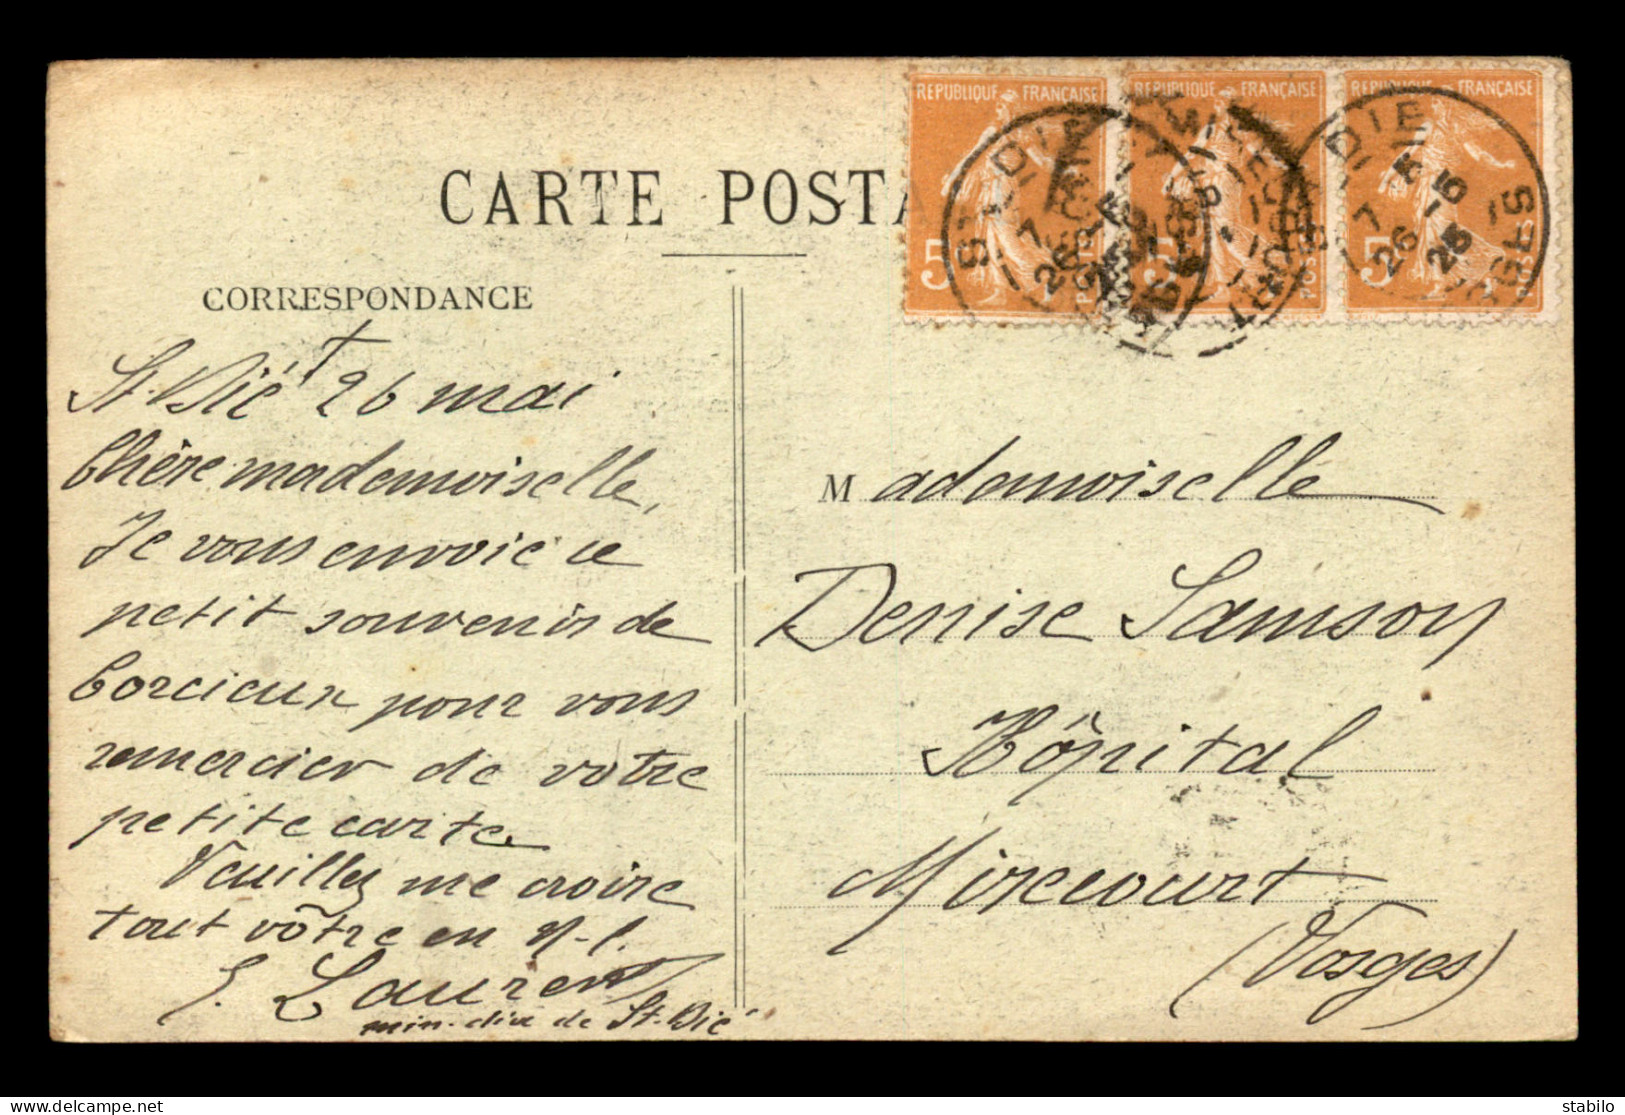 CARTE POSTA
CORRESPONDANCE
St. Dié † 26 mai
Chère mademoiselle,
Je vous envoie ce
petit souvenir de
Corcieux pour vous
remercier de votre
petite carte.
Veuillez me croire
tout vôtre en N-S.
E. Laurent
St. Dié
Mademoiselle
Denise Samson
Hôpital
Mirecourt
(Vosges)
REPUBLIQUE FRANÇAISE
5
POSTES
REPUBLIQUE FRANÇAISE
5
POSTES
REPUBLIQUE FRANÇAISE
5
POSTES
ST-DIE
7
26
ST-DIE
VOSGES
7
26 -5
25
delcampe.net
stabilo